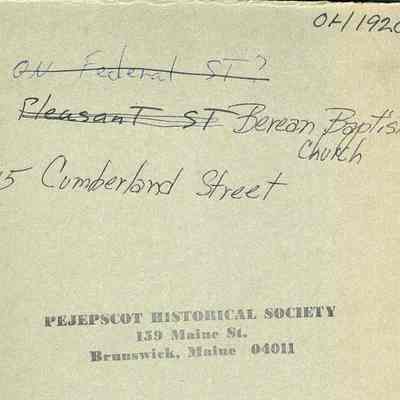 OH/1920
ON Federal ST?
Pleasant ST Berean Baptis
Church
15 Cumberland Street
PEJEPSCOT HISTORICAL SOCIETY
159 Maine St.
Brunswick, Maine 04011